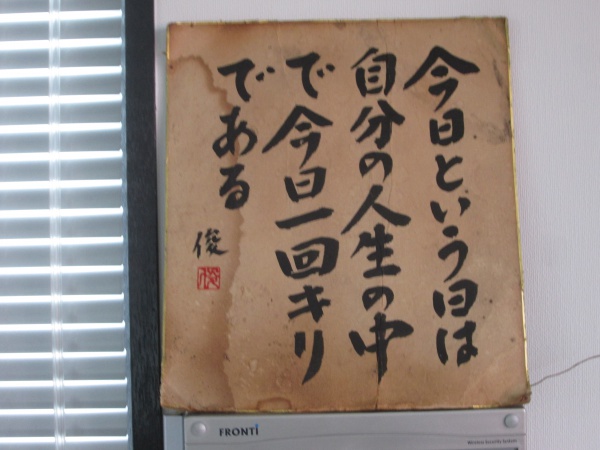 今日という日は
自分の人生の中
で今日一回キリ
である
俊
俊
FRONTi
Wireless Security System